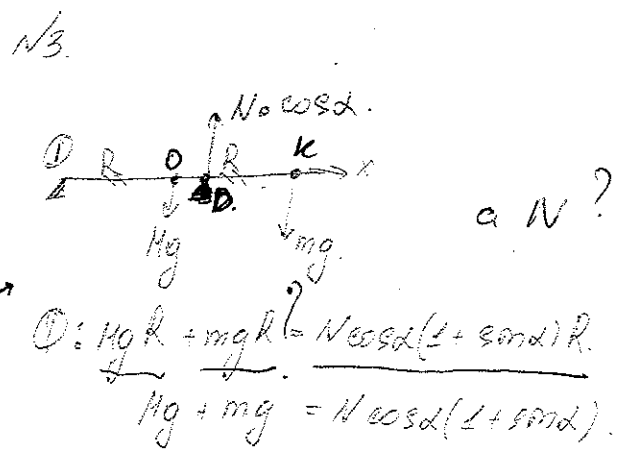 №3.
N·cosα.
① R O R K x
D.
Mg mg.
а N?
①: MgR + mgR = Ncosα(1 + sinα)R.
?
Mg + mg = Ncosα(1 + sinα).